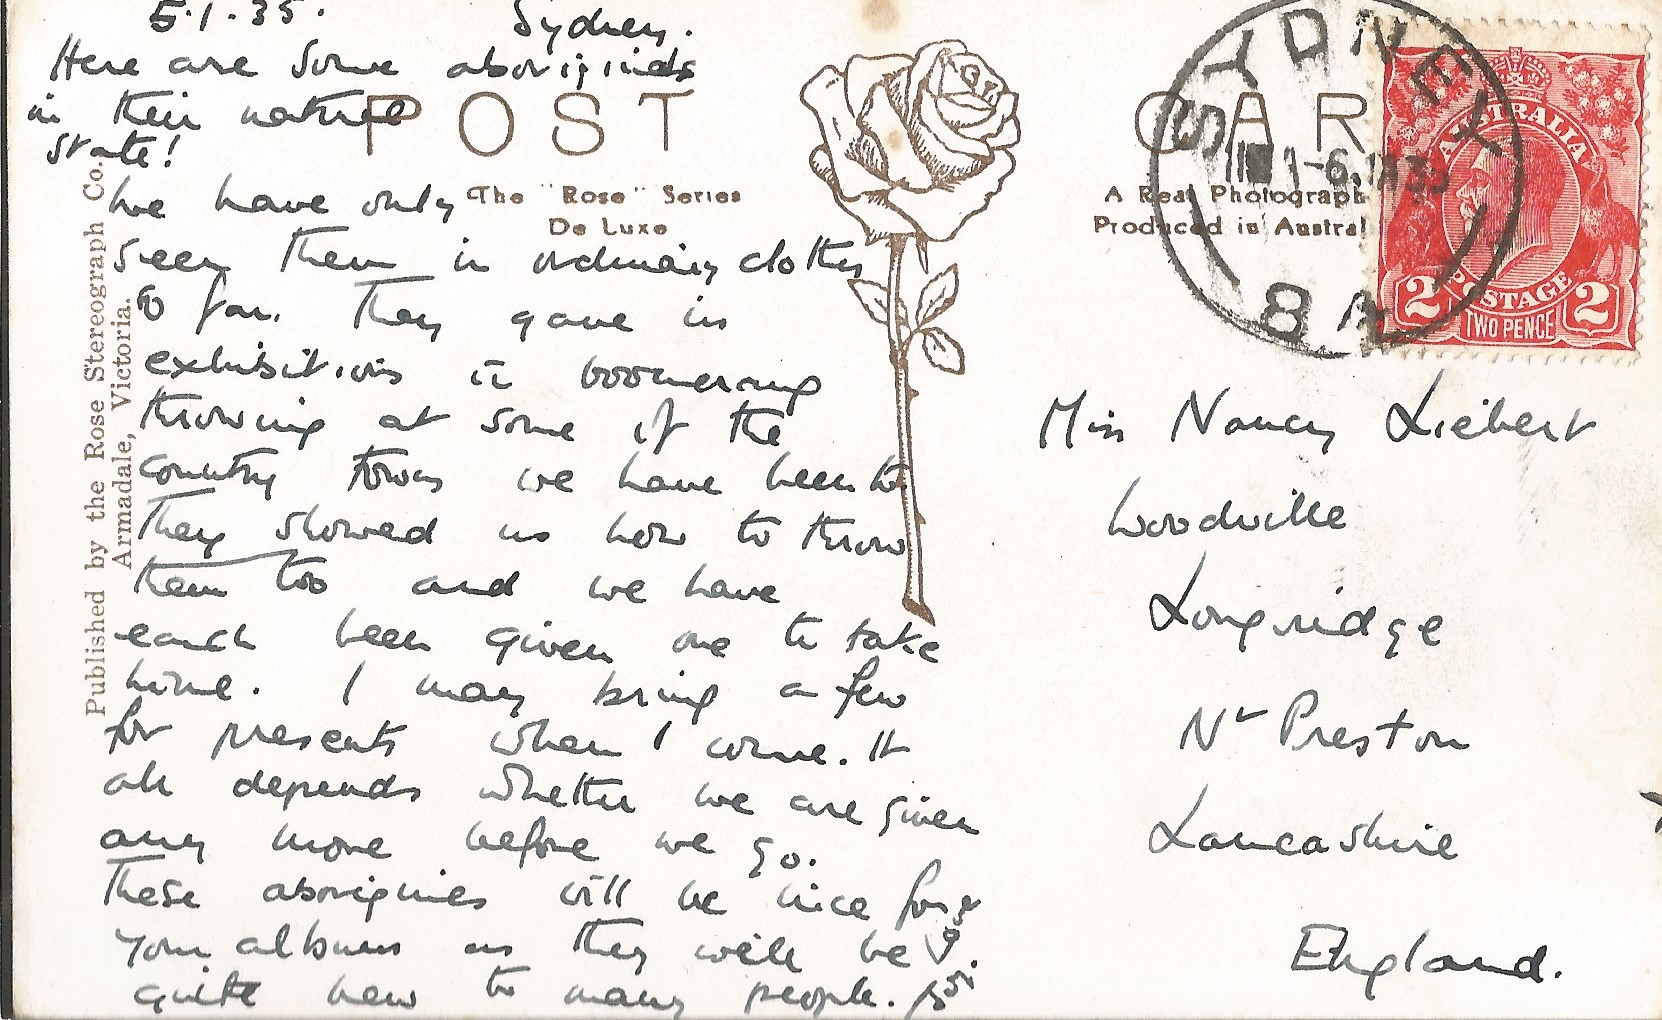 5.1.35. Sydney.
Here are some aboriginals
in their natural
state!
We have only
seen them in ordinary clothes
so far. They gave us
exhibitions in boomerang
throwing at some of the
country towns we have been to
They showed us how to throw
them too and we have
each been given one to take
home. I may bring a few
for presents when I come. It
all depends whether we are given
any more before we go.
These aborigines will be nice for
your album as they will be
quite new to many people.
POST CAR
The "Rose" Series
De Luxe
A Real Photograph
Produced in Austral
Published by the Rose Stereograph Co.
Armadale, Victoria.
SYDNEY
AUSTRALIA
2 POSTAGE 2
TWO PENCE
Miss Nancy Liebert
Woodville
Longridge
Nr Preston
Lancashire
England.